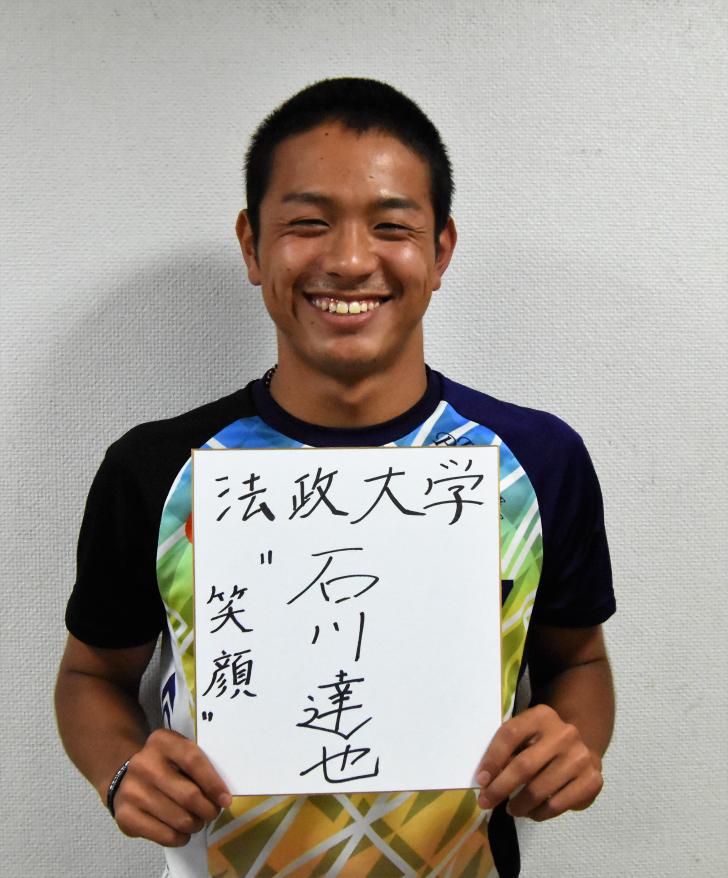 法政大学
石川達也
"笑顔"